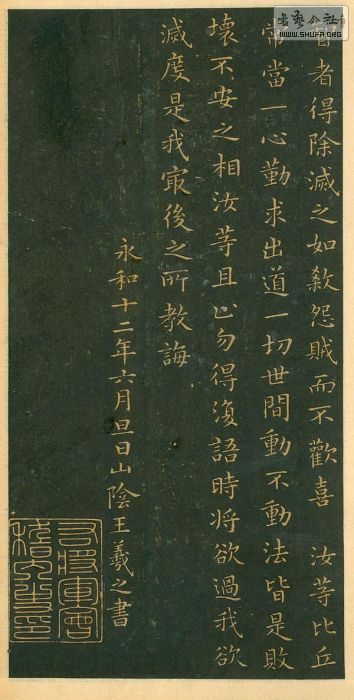 智者得除滅之如煞怨賊而不歡喜 汝䓁比丘
常當一心勤求出道一切世間動不動法皆是敗
壞不安之相汝䓁且止勿得復語時将欲過我欲
滅度是我㝡後之所教誨
永和十二年六月旦日山陰王羲之書
右将軍會
稽内史印
書藝公社
WWW.SHUFA.ORG